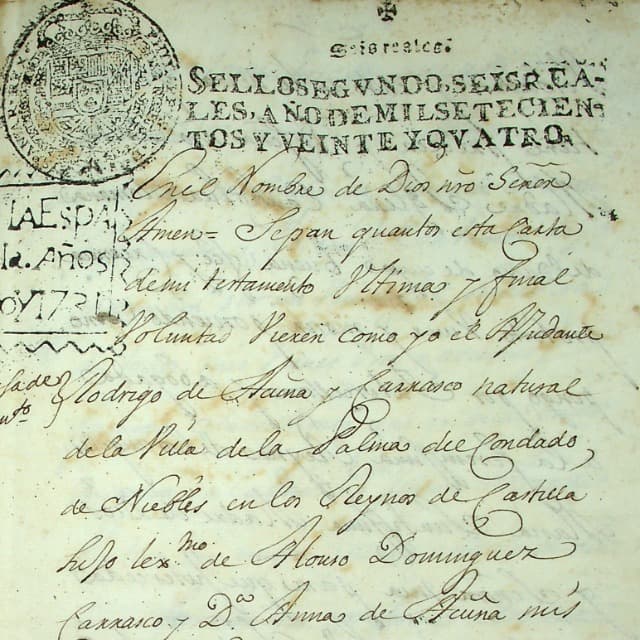 Seis reales.
SELLO SEGVNDO, SEIS REA-
LES, AÑO DE MIL SETECIEN-
TOS Y VEINTE Y QVATRO.
En el Nombre de Dios nro Señor
Amen = Sepan quantos esta Carta
de mi testamento Vltima y final
Voluntad Vieren como yo el Ayudante
Rodrigo de Acuña y Carrasco natural
de la Villa de la Palma del Condado,
de Niebles en los Reynos de Castilla
hijo lexmo. de Alonso Dominguez
Carrasco y Da Anna de Acuña mis
LA ESPA
Años
OY 1731